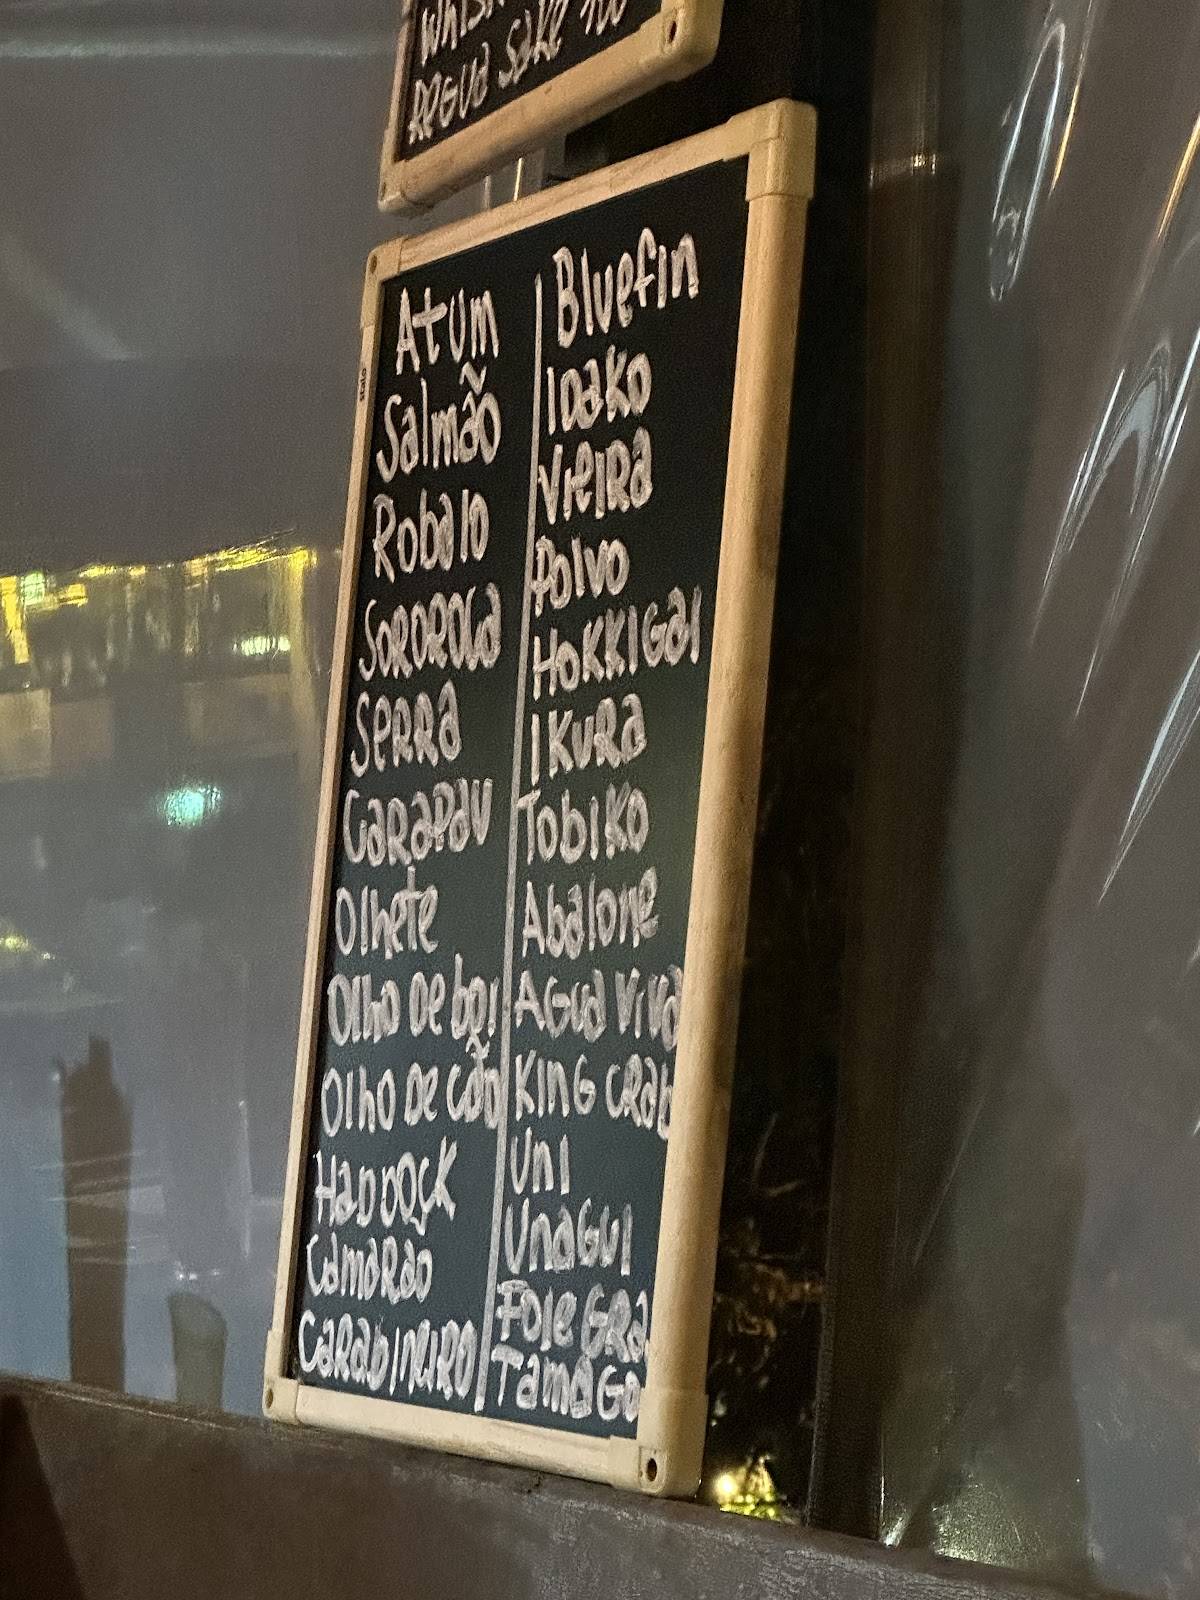 REGUA SAKE
Atum
Salmão
Robalo
SOROROCA
SERRA
CARAPAU
Olhete
Olho DE boi
Olho DE cão
HADDOCK
CAMARÃO
CARABINEIRO
Bluefin
IDAKO
VIEIRA
Polvo
HOKKIGAI
IKURA
TOBIKO
Abalone
AGUA VIVA
KING CRAB
UNI
UNAGUI
FOIE GRA
TAMAGO